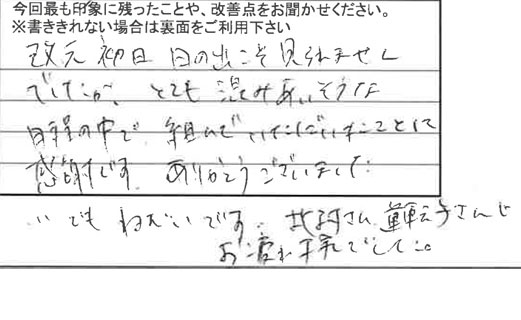 今回最も印象に残ったことや、改善点をお聞かせください。
※書ききれない場合は裏面をご利用下さい
改元初日 日の出こそ見られません
でしたが、とても混みあいそうな
日程の中で 組んでいただいたことに
感謝です ありがとうございました
でも です さん さん
お疲れ様でした。